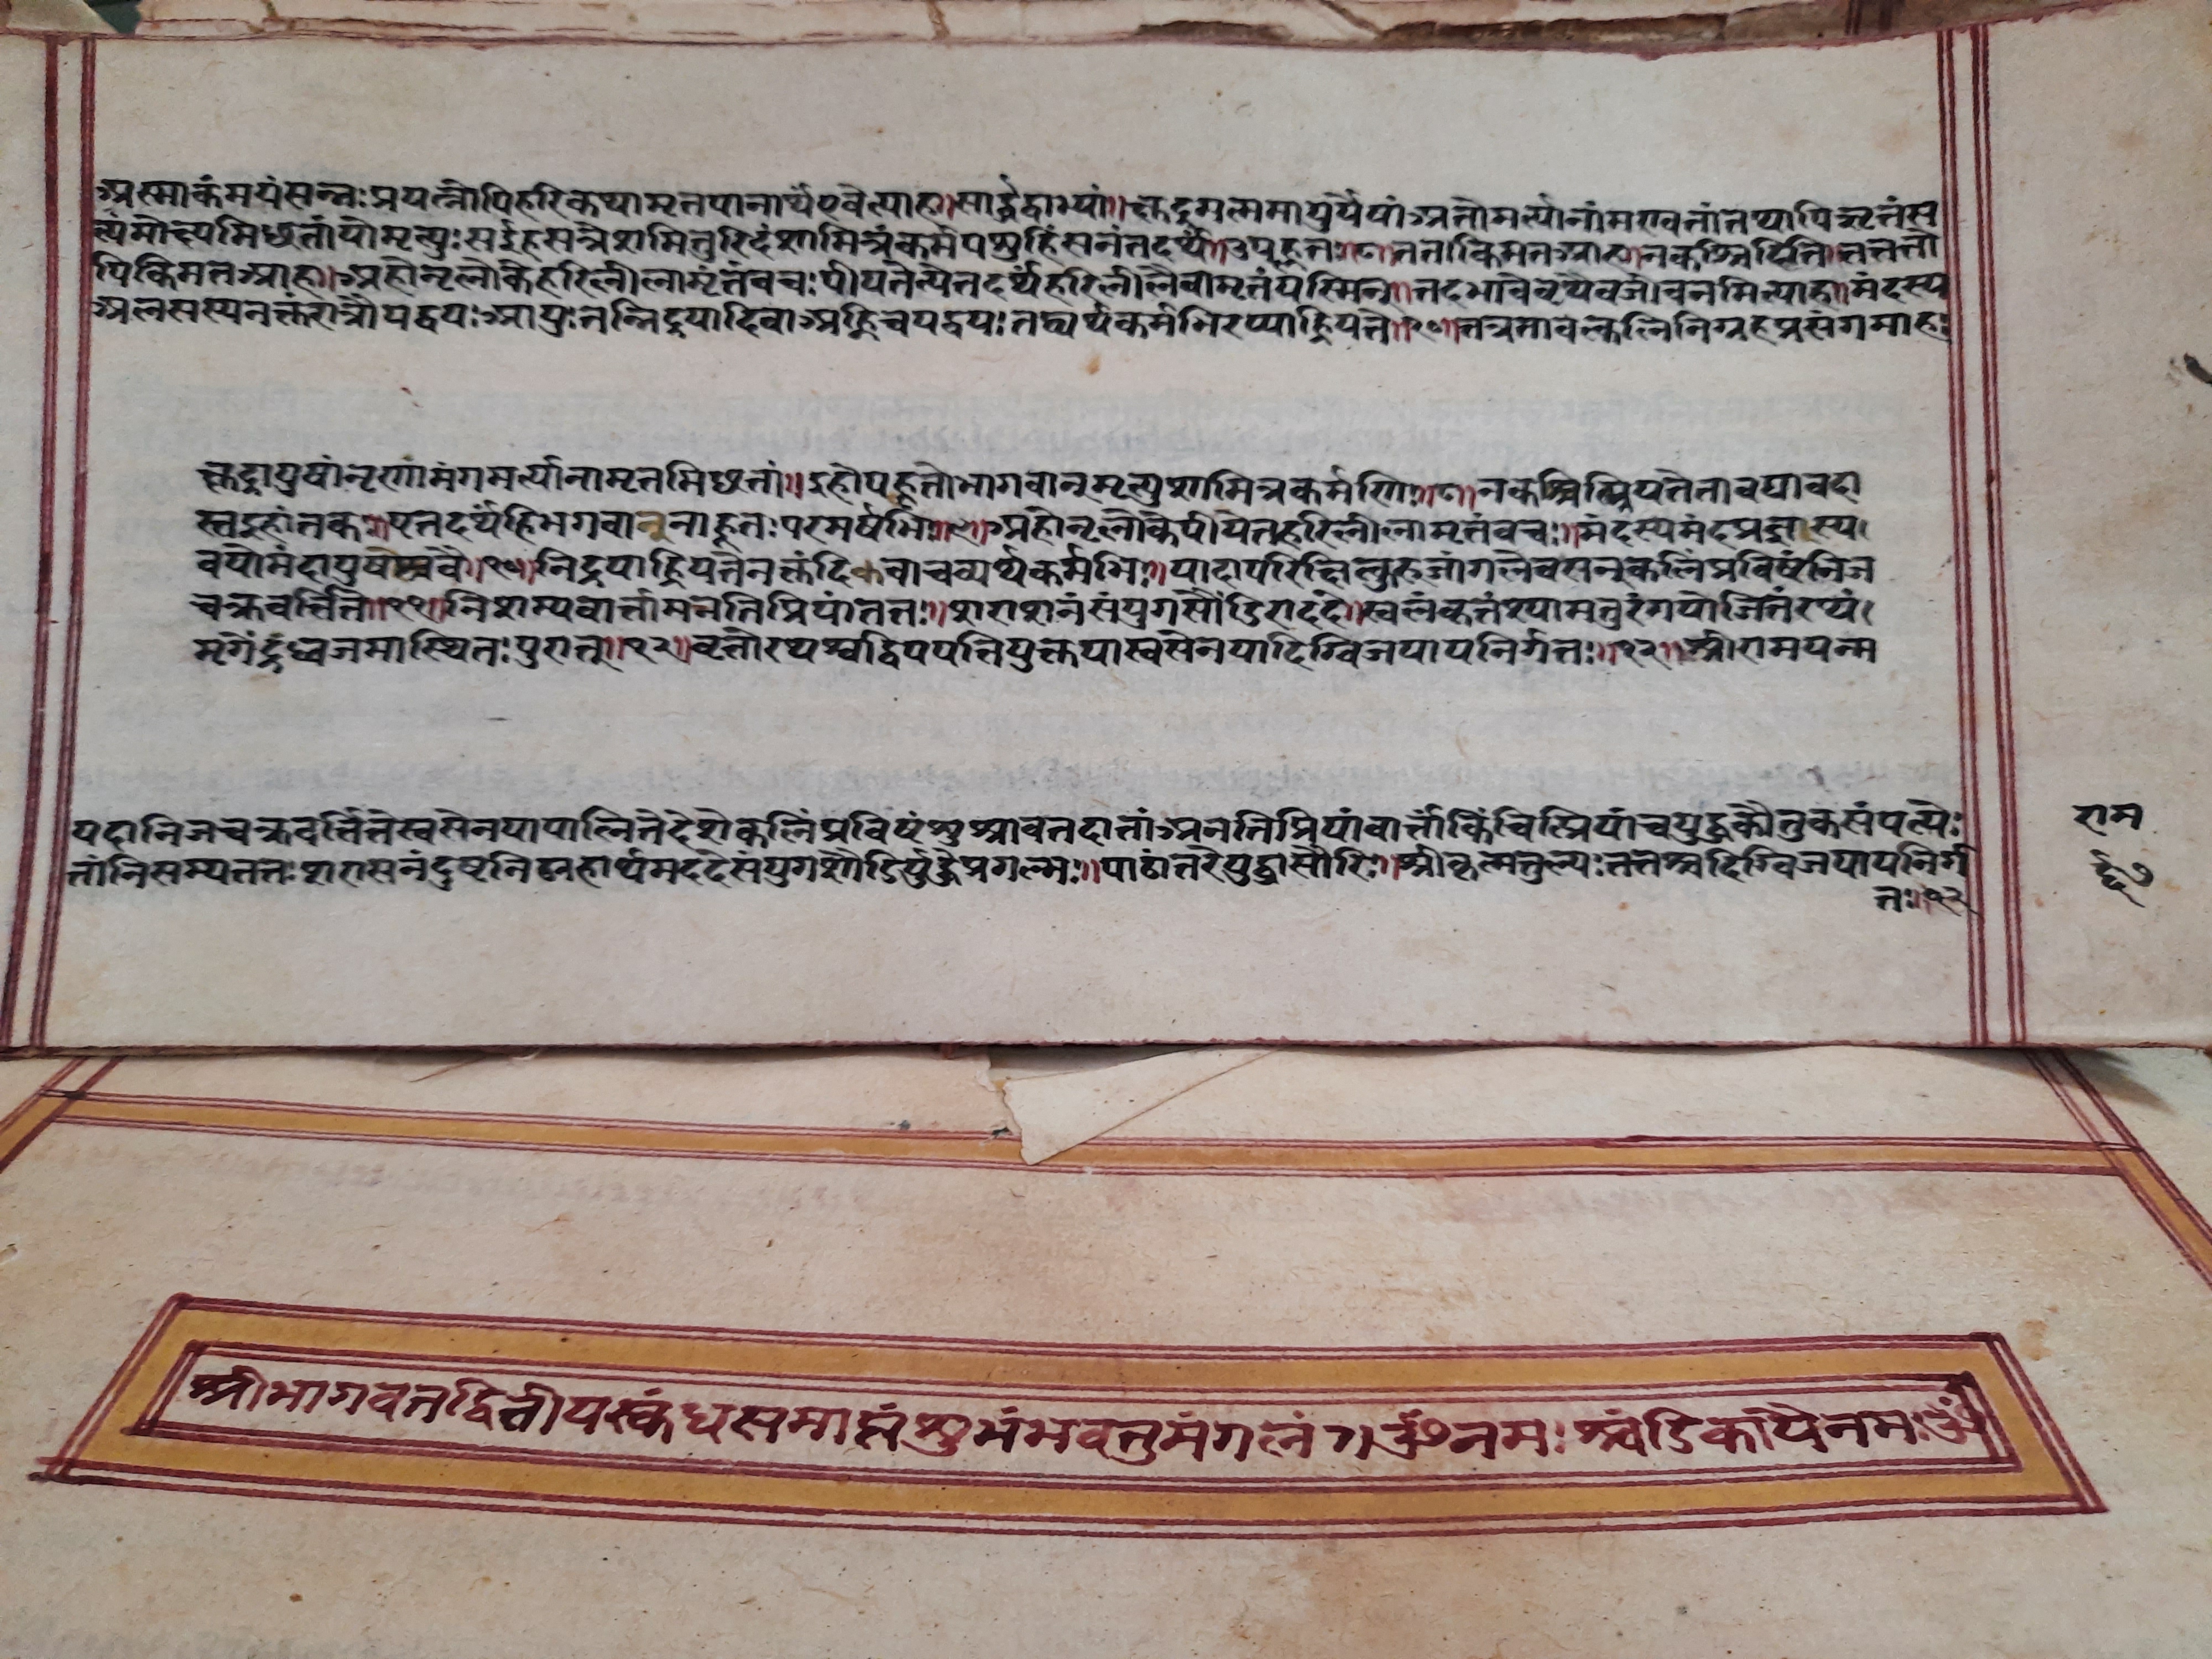 अस्माकंमयंसन्नः प्रयत्नोपिहरिकथामृतपानार्थएवेत्याह।सार्द्धद्वाभ्यां॥क्षुद्रमल्पमायुर्येषां अतोमर्त्यानांमरणवतांतथापिऋतंस
त्यंमोक्ष्यमिछतांयोमृत्युःसइहसत्रेशमितुरिदंशामित्रंकर्मपशुहिंसनंतदर्थं॥उपहूतः॥८॥ततःकिमतआह॥नकश्चिदिति॥ततस्तो
पिकिमतआह॥अहोनृलोकेहरिलीलामृतंवचःपीयतेत्येतदर्थंहरिलीलैवामृतंयस्मिन्॥तदभावेवृथैवजीवनमित्याह॥मंदस्य
अलसस्यनक्तंरात्रौयद्वयःआयुःतन्निद्रयादिवाअह्निचयद्वयःतद्व्यर्थकर्मभिरप्याह्रियते॥१०॥तत्रतावत्कलिनिग्रहप्रसंगमाह॥
क्षुद्रायुषांनृणामंगमर्त्यानामृतमिछतां॥इहोपहूतोभगवान्मृत्युशामित्रकर्मणि॥८॥नकश्चित्म्रियतेतावद्यावदा
स्तइहांतकः॥एतदर्थंहिभगवानुनाहूतःपरमर्षभिः॥९॥अहोनृलोकेपीयेतहरिलीलामृतंवचः॥मंदस्यमंदप्रज्ञास्य।
वयोमंदायुषेश्चवै॥१०॥निद्रयाह्रियतेनक्तंदिवाचव्यर्थकर्मभिः॥यादापरिक्षित्कुरुजांगलेवसन्कलिंप्रविष्टंनिज
चक्रवर्त्तिते॥११॥निशम्यवार्त्तामनतिप्रियांततः॥शराशनंसंयुगसौंडिराददे॥स्वलंकृतंश्यामतुरंगयोजितंरथं।
मृगेंद्रध्वजमास्थितःपुरात्॥१२॥वृतोरथश्वद्विपपत्तियुक्तयास्वसेनयादिग्विजयायनिर्गतः॥१३॥श्रीरामयन्म
यदानिजचक्रवर्त्तितेस्वसेनयापालितेदेशेकलिंप्रविष्टंशुश्रावतदातांअनतिप्रियांवार्त्तांकिंचित्प्रियांचयुद्धकौतुकसंपत्यैः
तांनिसम्यततःशरासनंदुष्टनिग्रहार्थमददेसंयुगशौंडिर्युद्धेप्रगल्भः॥पाठांतरेयुद्धासौरिः॥श्रीकृष्णतुल्यःततश्चदिग्विजयायनिर्ग
तः॥१३
राम
७
श्रीभागवतद्वितीयस्कंधसमाप्तंशुभंभवतुमंगलं॥ॐनमःश्चंडिकायैनमःॐ